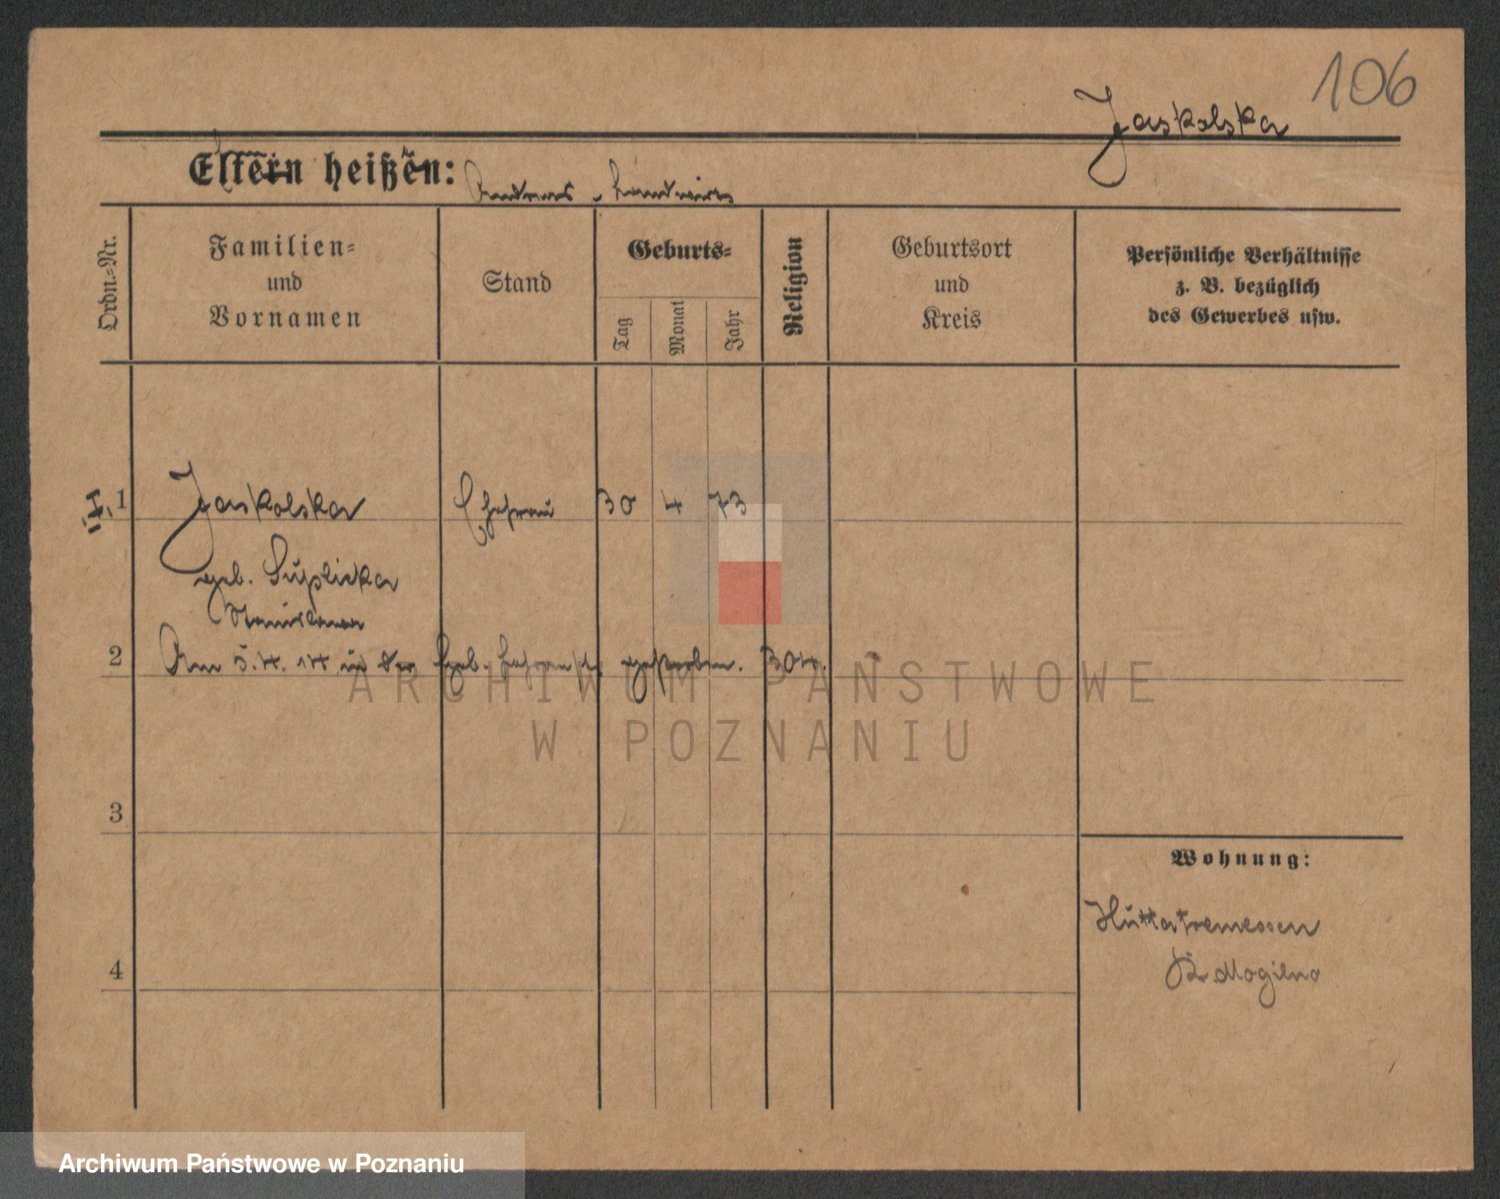 106
Jaskolska
Eltern heißen: Andreas, Landwirt
Ordn.=Nr.
Familien=
und
Vornamen
Stand
Geburts=
Tag
Monat
Jahr
Religion
Geburtsort
und
Kreis
Persönliche Verhältnisse
z. B. bezüglich
des Gewerbes usw.
1 Jaskolska Ehefrau 30 4 73
geb. Suplicka
Stanislawa
2 Am 5.4. 14 in der Heb. gestorben. 304.
3
4
Wohnung:
Huttatremessen
Kr. Mogilno
ARCHIWUM PAŃSTWOWE
W POZNANIU
Archiwum Państwowe w Poznaniu